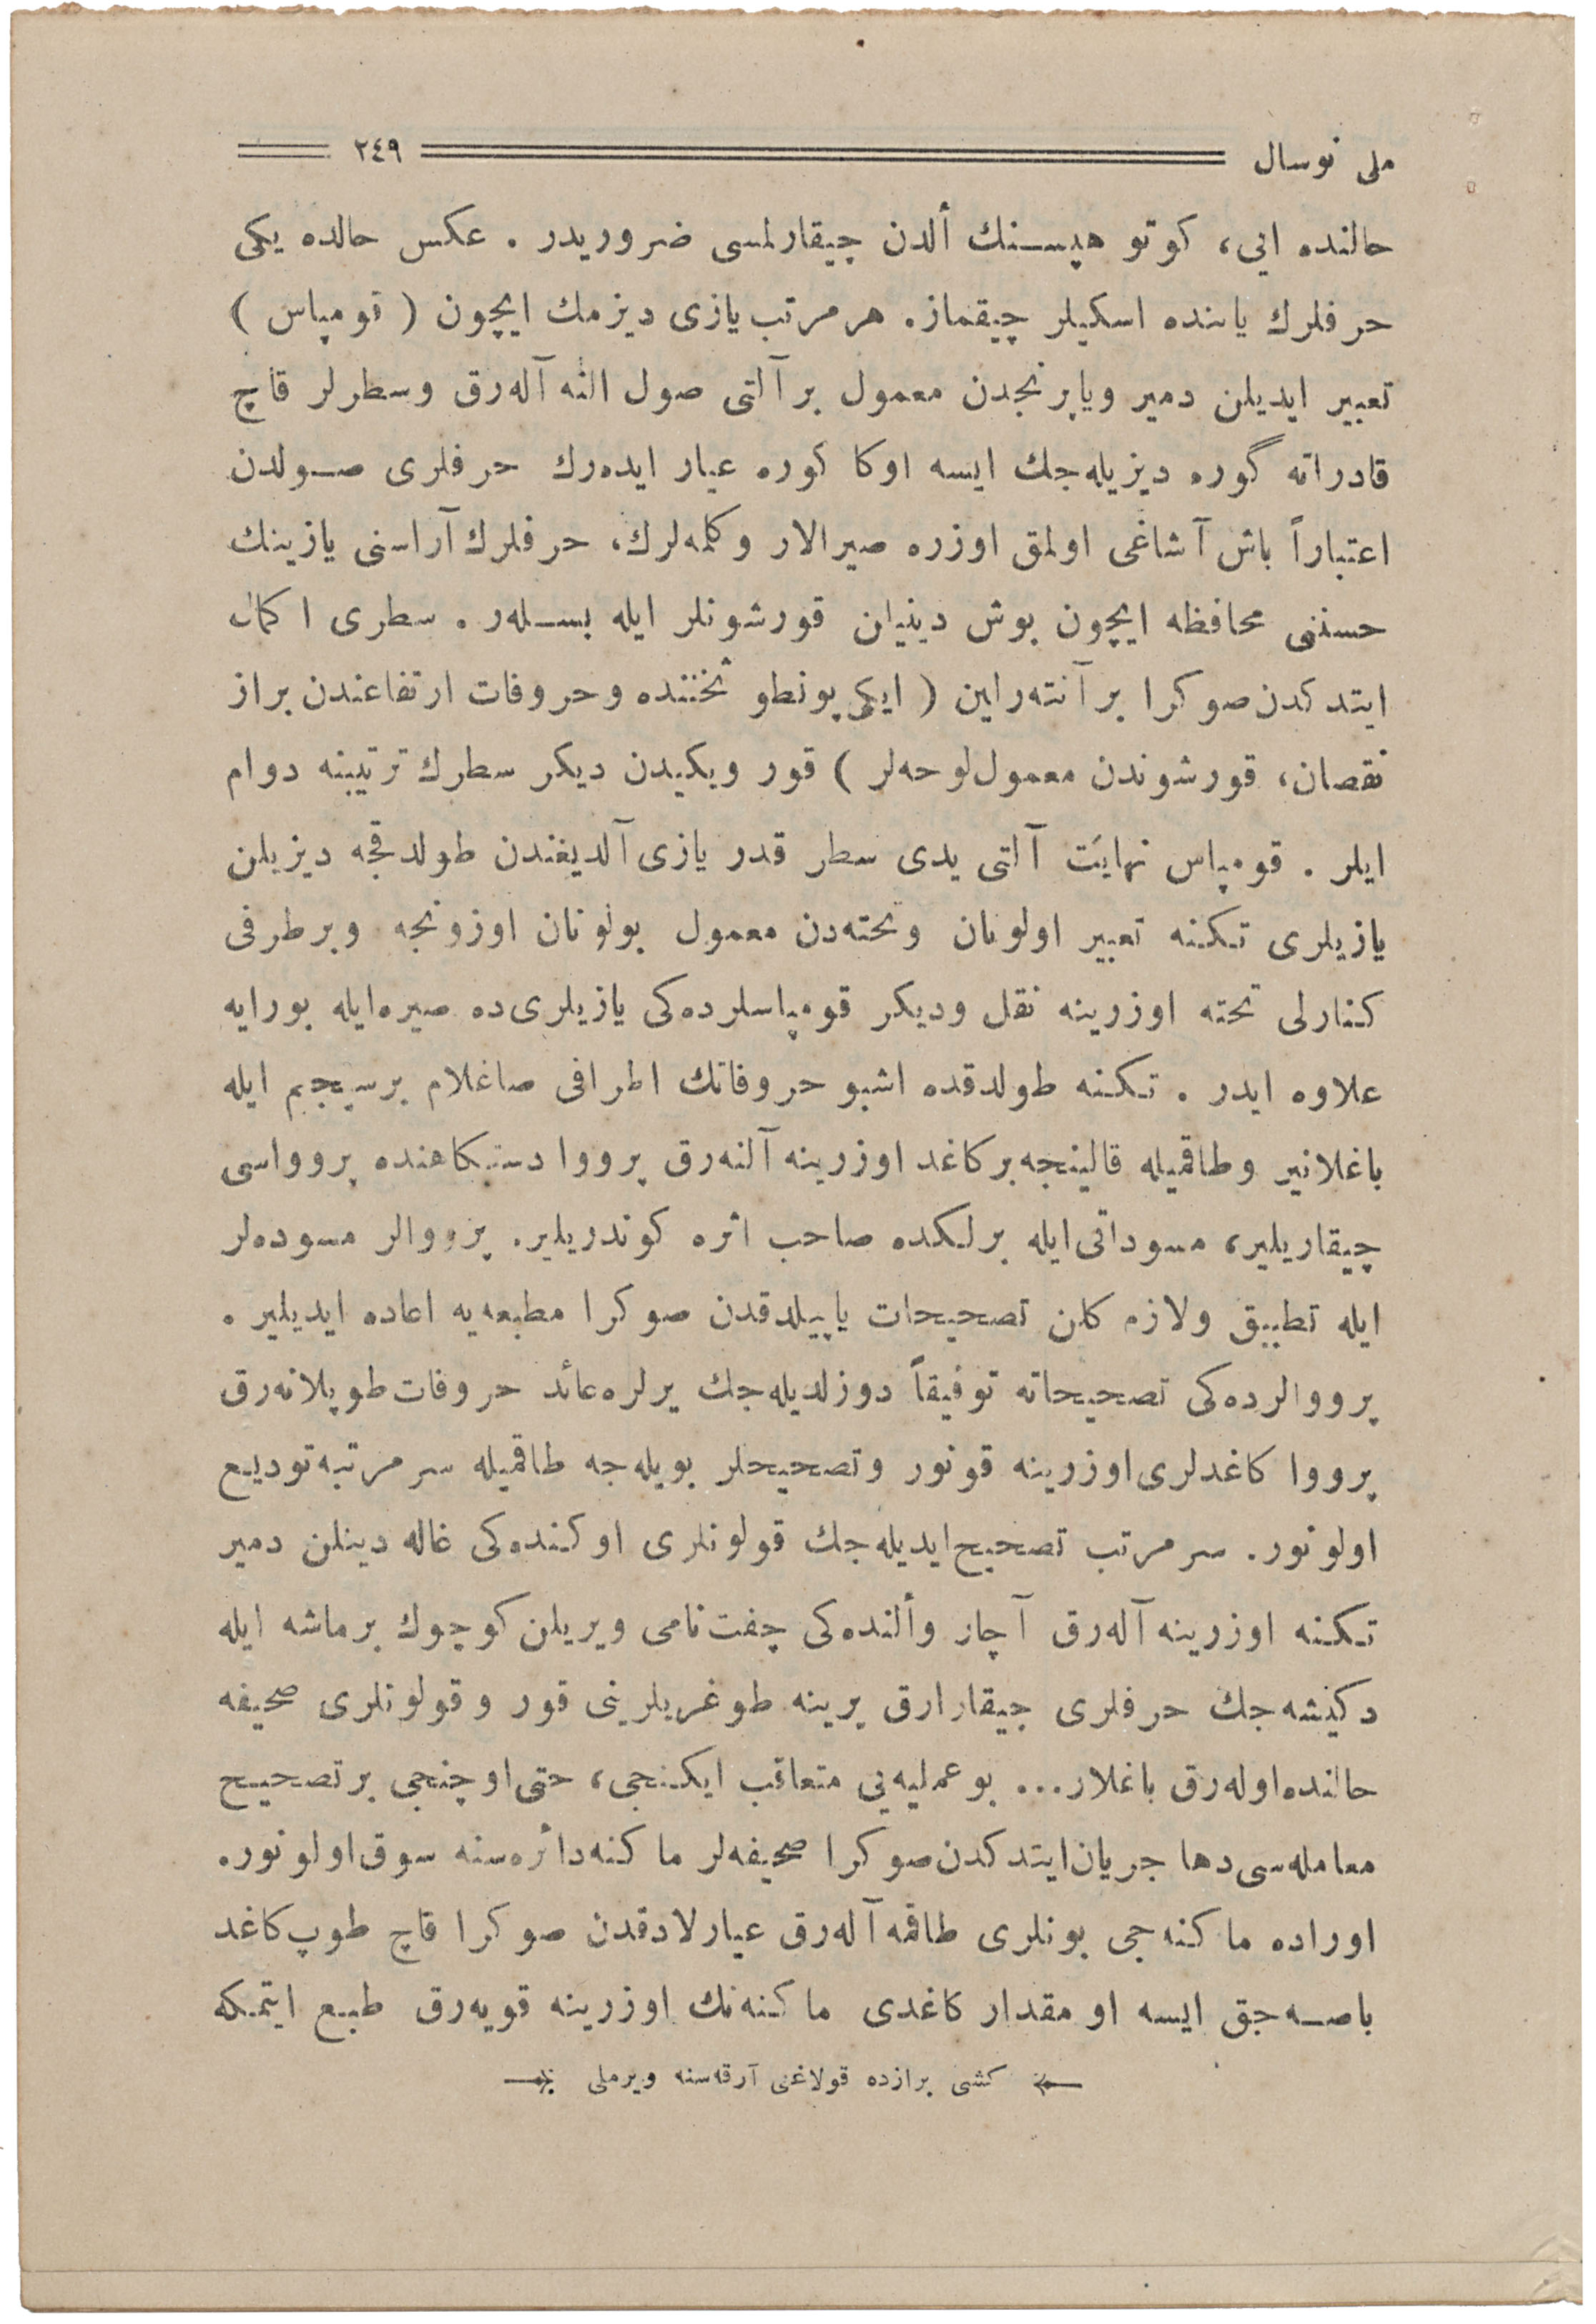 ملی نوسال ٢٤٩
حالنده ایی، كوتو هپسنك ألدن چیقارلمسی ضروریدر . عكس حالده یكی
حرفلرك یاننده اسكیلر چیقماز. هر مرتب یازی دیزمك ایچون ( قومپاس )
تعبیر ایدیلن دمیر ویاپرنجدن معمول بر آلتی صول النه آله‌رق وسطرلر قاچ
قادراته گوره دیزیله‌جك ایسه اوكا كوره عیار ایده‌رك حرفلری صولدن
اعتباراً باش آشاغی اولمق اوزره صیرالار وكلمه‌لرك، حرفلرك آراسنی یازینك
حسننی محافظه ایچون بوش دینیان قورشونلر ایله بسله‌ر . سطری اكمال
ایتدكدن صوكرا بر آنته‌راین ( ایكی پونطو ثخننده وحروفات ارتفاعندن براز
نقصان، قورشوندن معمول لوحه‌لر ) قور ویكیدن دیكر سطرك ترتیبنه دوام
ایلر . قومپاس نهایت آلتی یدی سطر قدر یازی آلدیغندن طولدقجه دیزیلن
یازیلری تكنه تعبیر اولونان وتحته‌دن معمول بولونان اوزونجه وبرطرفی
كنارلی تحته اوزرینه نقل ودیكر قومپاسلرده‌كی یازیلری‌ده صیره‌ایله بورایه
علاوه ایدر . تكنه طولدقده اشبو حروفاتك اطرافی صاغلام برسیجم ایله
باغلانیر وطاقمیله قالینجه بركاغد اوزرینه آلنه‌رق پرووا دستكاهنده پرووا‌سی
چیقاریلیر، مسوداتی‌ایله برلكده صاحب اثره كوندریلیر. پرووالر مسوده‌لر
ایله تطبیق ولازم كلن تصحیحات یاپیلدقدن صوكرا مطبعه‌یه اعاده ایدیلیر .
پرووالرده‌كی تصحیحاته توفیقاً دوزلدیله‌جك یرلره‌عائد حروفات طوپلانه‌رق
پرووا كاغدلری‌اوزرینه قونور وتصحیحلر بویله‌جه طاقمیله سرمرتبه‌تودیع
اولونور. سرمرتب تصحیح‌ایدیله‌جك قولونلری اوكنده‌كی غاله دینلن دمیر
تكنه اوزرینه آله‌رق آچار وألنده‌كی چفت نامی ویریلن كوچوك برماشه ایله
دكیشه‌جك حرفلری چیقارارق یرینه طوغریلرینی قور وقولونلری صحیفه
حالنده‌اوله‌رق باغلار... بوعملیه‌یی متعاقب ایكنجی، حتی‌اوچنجی برتصحیح
معامله‌سی‌دها جریان‌ایتدكدن صوكرا صحیفه‌لر ماكنه‌دائره‌سنه سوق‌اولونور.
اوراده ماكنه‌جی بونلری طاقمه آله‌رق عیارلادقدن صوكرا قاچ طوپ كاغد
باصه‌جق ایسه او مقدار كاغدی ماكنه‌نك اوزرینه قویه‌رق طبع ایتمكه
كشی برازده قولاغنی آرقه‌سنه ویرملی